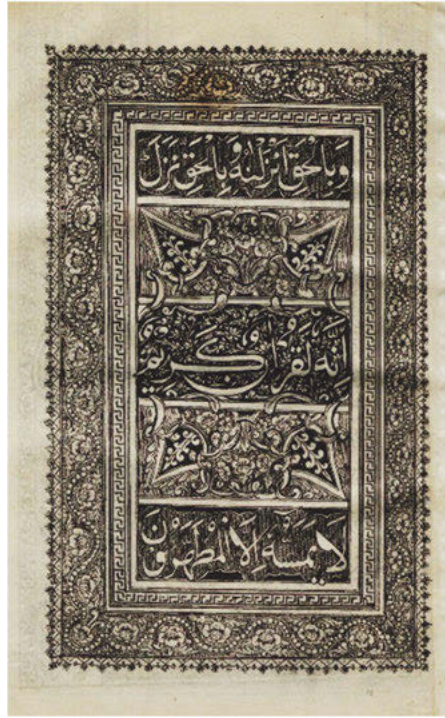 وَبِالْحَقِّ اَنْزَلْنٰهُ وَبِالْحَقِّ نَزَلَ
اِنَّهُ لَقُرْاٰنٌ كَرِيْمٌ
لَا يَمَسُّهٗ اِلَّا الْمُطَهَّرُوْنَ